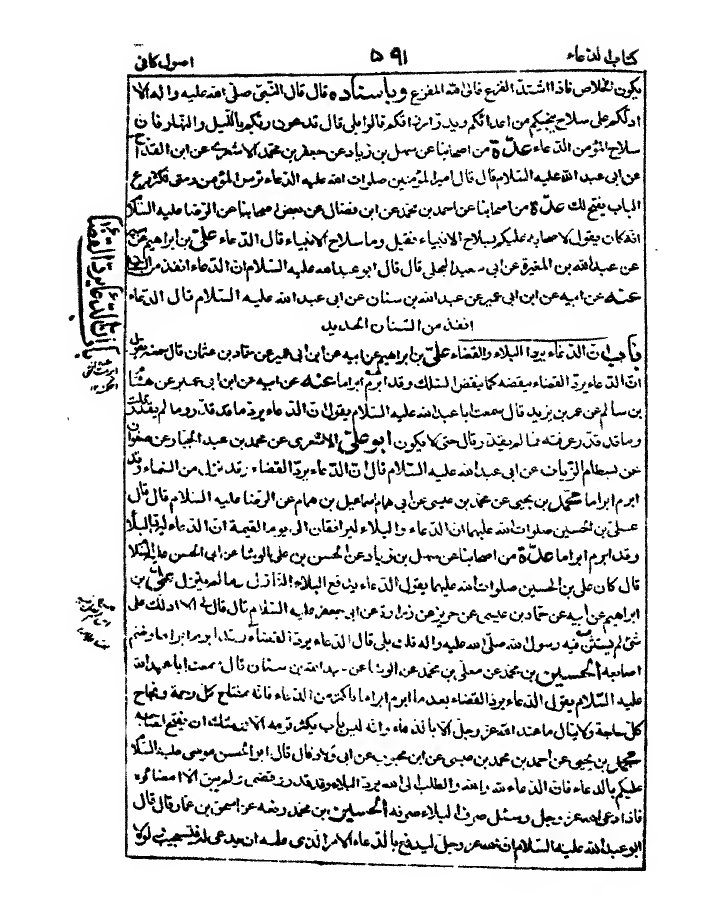 كتاب الدعاء
۵۹۱
اصول كافى
يكون الخلاص فاذا اشتد الفزع فالى الله المفزع وباسناده قال قال النبى صلى الله عليه واله الا
ادلكم على سلاح ينجيكم من اعدائكم ويدر ارزاقكم قالوا بلى قال تدعون ربكم بالليل والنهار فان
سلاح المؤمن الدعاء عدّة من اصحابنا عن سهل بن زياد عن جعفر بن محمد الاشعرى عن ابن القداح
عن ابى عبد الله عليه السلام قال قال امير المؤمنين صلوات الله عليه الدعاء ترس المؤمن ومتى تكثر قرع
الباب يفتح لك عدّة من اصحابنا عن احمد بن محمد عن ابن فضال عن بعض اصحابنا عن الرضا عليه السلام
انه كان يقول لاصحابه عليكم بسلاح الانبياء فقيل وما سلاح الانبياء قال الدعاء على بن ابراهيم عن ابيه
عن عبدالله بن المغيرة عن ابى سعيد البجلى قال قال ابو عبدالله عليه السلام ان الدعاء انفذ من السنان
عنه عن ابيه عن ابن ابى عمير عن عبدالله بن سنان عن ابى عبد الله عليه السلام قال الدعاء
انفذ من السنان الحديد
باب ان الدعاء يرد البلاء والقضاء على بن ابراهيم عن ابيه عن ابن ابى عمير عن حماد بن عثمان قال سمعته يقول
ان الدعاء يرد القضاء ينقضه كما ينقض السلك وقد ابرم ابراما عنه عن ابيه عن ابن ابى عمير عن هشام
بن سالم عن عمر بن يزيد قال سمعت ابا عبدالله عليه السلام يقول ان الدعاء يرد ما قد قدر وما لم يقدر قلت
وما قد قدر عرفته فما لم يقدر قال حتى لا يكون ابو على الاشعرى عن محمد بن عبد الجبار عن صفوان
عن بسطام الزيات عن ابى عبدالله عليه السلام قال ان الدعاء يرد القضاء وقد نزل من السماء وقد
ابرم ابراما محمد بن يحيى عن محمد بن عيسى عن ابى همام اسماعيل بن همام عن الرضا عليه السلام قال قال
على بن الحسين صلوات الله عليهما ان الدعاء والبلاء ليترافقان الى يوم القيمة ان الدعاء ليرد البلاء
وقد ابرم ابراما عدّة من اصحابنا عن سهل بن زياد عن الحسن بن على الوشا عن ابى الحسن عليه السلام
قال كان على بن الحسين صلوات الله عليهما يقول الدعاء يدفع البلاء النازل وما لم ينزل على بن
ابراهيم عن ابيه عن حماد بن عيسى عن حريز عن زرارة عن ابى جعفر عليه السلام قال قال لى الا ادلك على
شئ لم يستثن فيه رسول الله صلى الله عليه واله قلت بلى قال الدعاء يرد القضاء وقد ابرم ابراما وضم
اصابعه الحسين بن محمد عن معلى بن محمد عن الوشا عن عبدالله بن سنان قال سمعت ابا عبدالله
عليه السلام يقول الدعاء يرد القضاء بعد ما ابرم ابراما فاكثر من الدعاء فانه مفتاح كل رحمة ونجاح
كل حاجة ولا ينال ما عند الله عز وجل الا بالدعاء وانه ليس باب يكثر قرعه الا يوشك ان يفتح لصاحبه
محمد بن يحيى عن احمد بن محمد بن عيسى عن ابن محبوب عن ابى ولاد قال قال ابو الحسن موسى عليه السلام
عليكم بالدعاء فان الدعاء لله والله والطلب الى الله يرد البلاء وقد قدر وقضى ولم يبق الا امضاؤه
فاذا دعى الله عز وجل وسئل صرف البلاء صرفه الحسين بن محمد رفعه عن اسحق بن عمار قال قال
ابو عبدالله عليه السلام ان الله عز وجل ليدفع بالدعاء الامر الذى علمه ان يدعى له فيستجيب لولا
باب ان الدعاء يرد القضاء